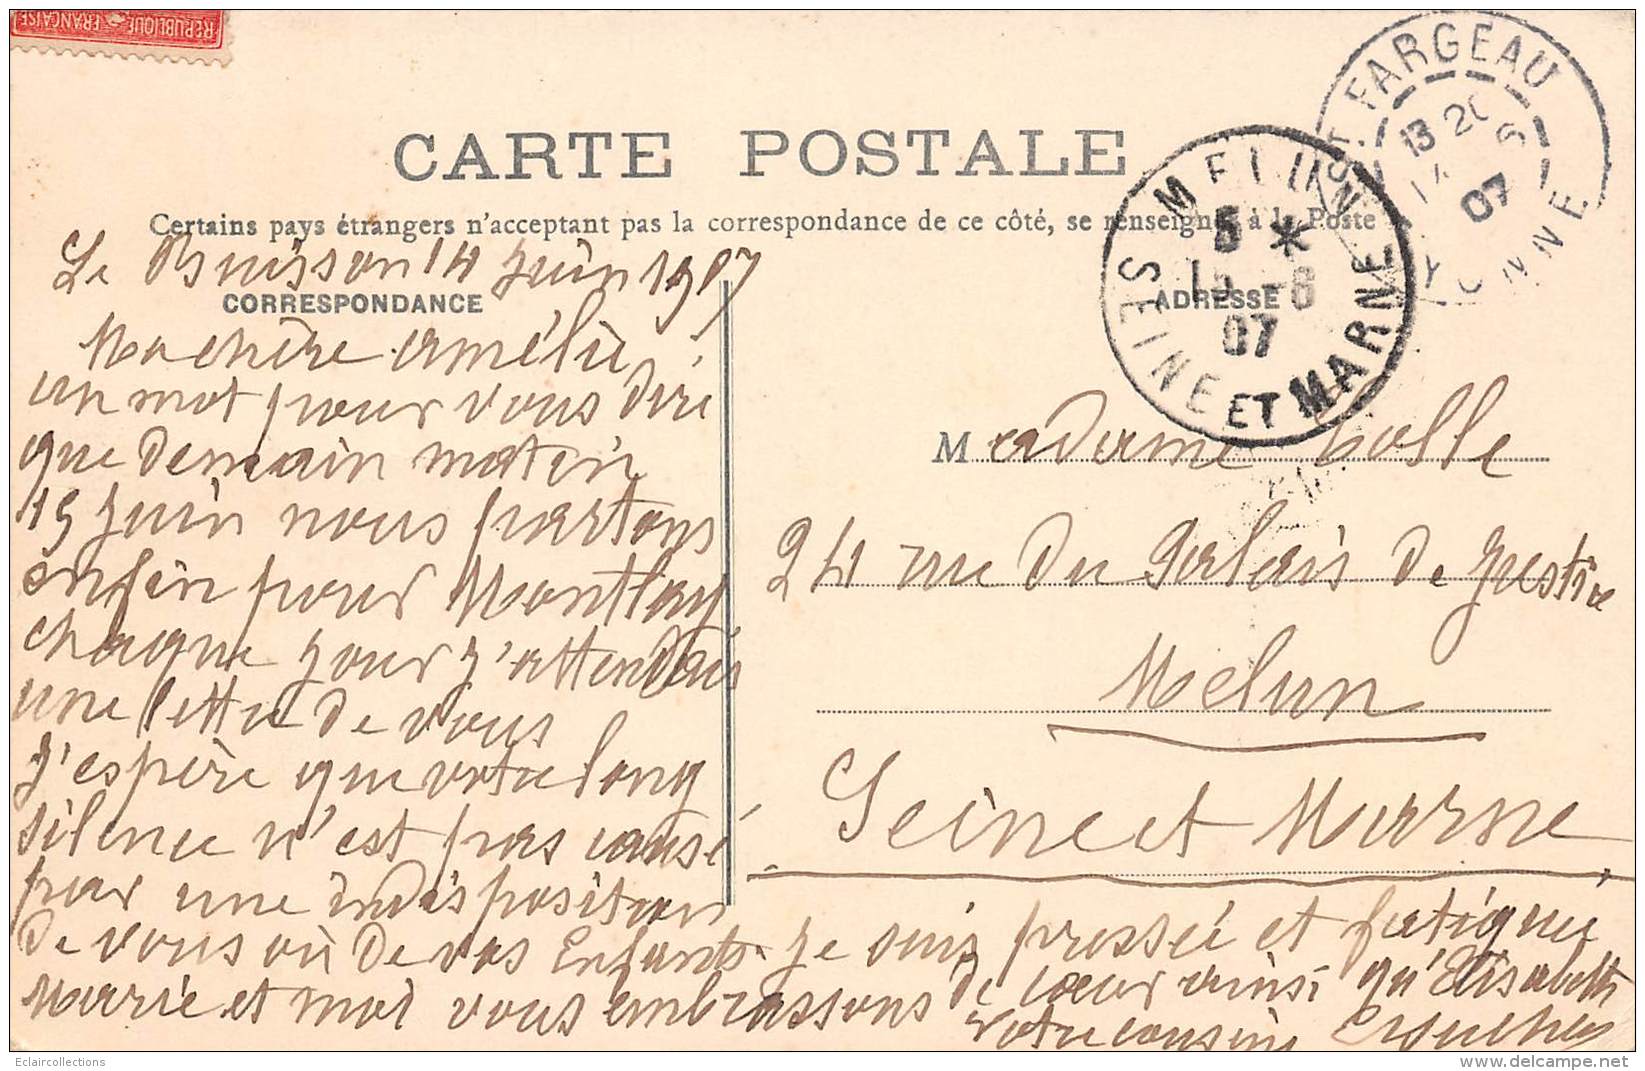 RÉPUBLIQUE FRANÇAISE
CARTE POSTALE
Certains pays étrangers n'acceptant pas la correspondance de ce côté, se renseigner à la Poste
CORRESPONDANCE
ADRESSE
ST FARGEAU
13 20
14 6
07
YONNE
MELUN
5 *
15 -6
07
SEINE ET MARNE
Le Buisson 14 juin 1907
Ma chère Amélie
un mot pour vous dire
que demain matin
15 juin nous partons
enfin pour Montlay
chaque jour j'attendais
une lettre de vous
j'espère que votre long
silence n'est pas causé
par une indisposition
de vous où de vos Enfants. je suis pressée et fatiguée
Marie et moi vous embrassons de cœur ainsi qu'Elisabeth
votre cousine
Madame Colle
24 rue du Palais de justice
Melun
Seine et Marne
Eclaircollections
www.delcampe.net